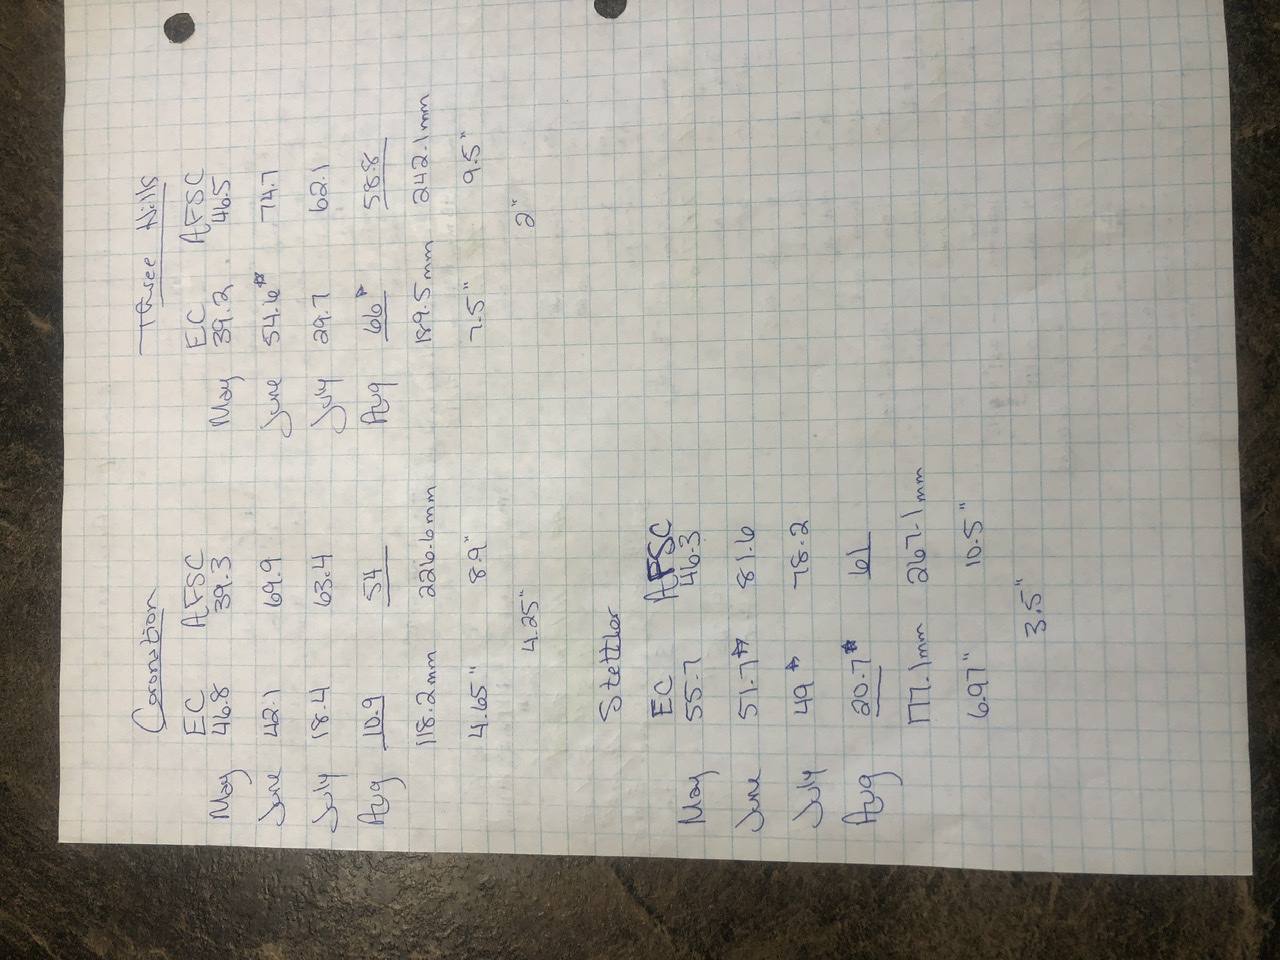 Coronation
EC AFSC
May 46.8 39.3
June 42.1 69.9
July 18.4 63.4
Aug 10.9 54
118.2mm 226.6mm
4.65" 8.9"
4.25"
Three Hills
EC AFSC
May 39.2 46.5
June 54.6* 74.7
July 29.7 62.1
Aug 66* 58.8
189.5mm 242.1mm
7.5" 9.5"
2"
Stettler
EC AFSC
May 55.7 46.3
June 51.7* 81.6
July 49* 78.2
Aug 20.7* 61
177.1mm 267.1mm
6.97" 10.5"
3.5"